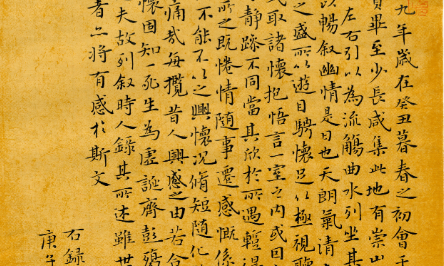 九年歲在癸丑暮春之初會于
賢畢至少長咸集此地有崇山
左右引以為流觴曲水列坐其
以暢敘幽情是日也天朗氣清
之盛所以遊目騁懷足以極視聽
或取諸懷抱悟言一室之內或因
靜躁不同當其欣於所遇暫得
所之既惓情隨事遷感慨係
不能不以之興懷況脩短隨化
痛哉每攬昔人興感之由若合
懷固知死生為虛誕齊彭殤
夫故列敘時人錄其所述雖世
者亦將有感於斯文
右錄
庚